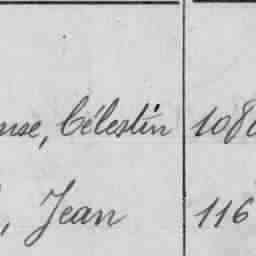 Célestin 108
, Jean 116